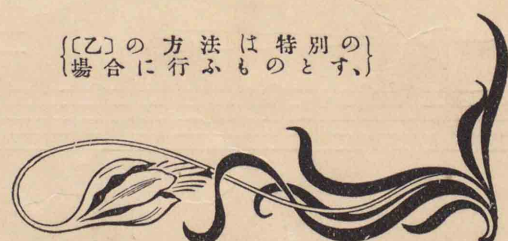 {〔乙〕の方法は特別の}
{場合に行ふものとす、}